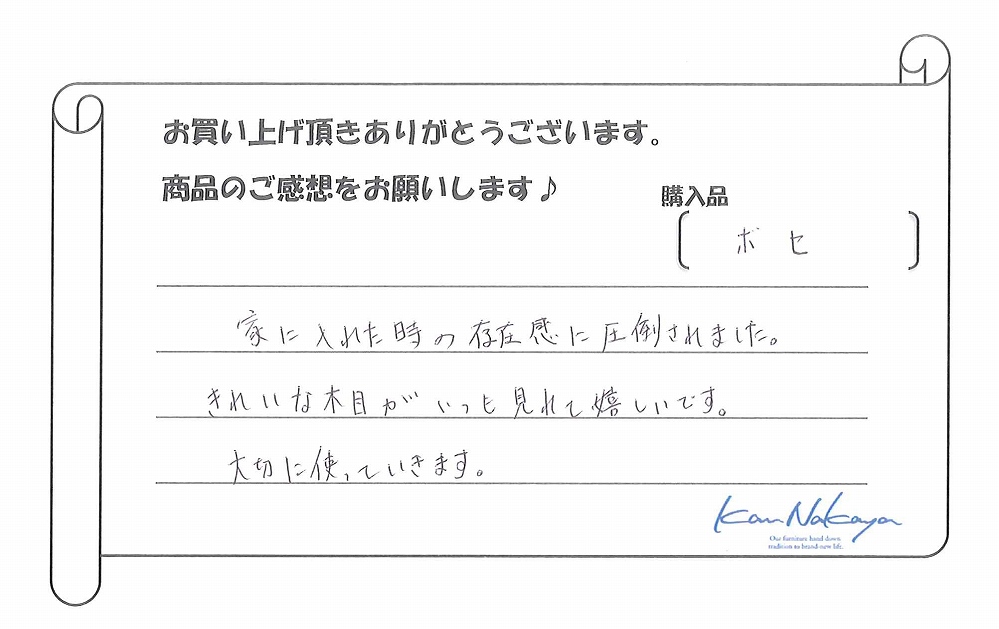 お買い上げ頂きありがとうございます。
商品のご感想をお願いします♪
購入品
ボセ
家に入れた時の存在感に圧倒されました。
きれいな木目がいつも見れて嬉しいです。
大切に使っていきます。
Kan Nakaya
Our furniture hand down
tradition to brand-new life.